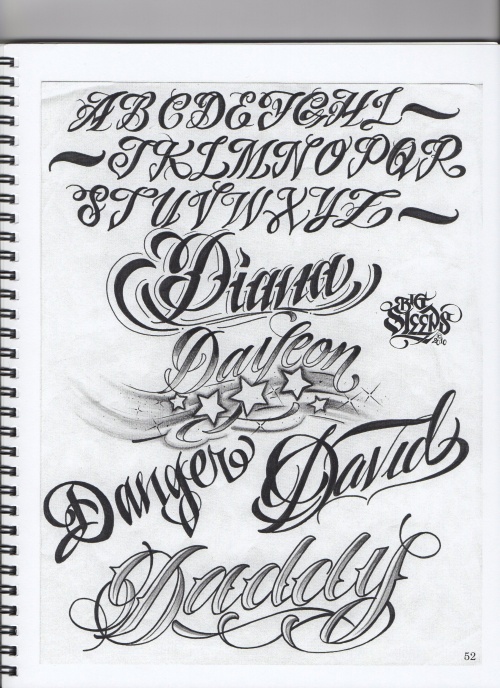 ABCDEFGHI
JKLMNOPQR
STUVWXYZ
Diana
BIG
SLEEPS
Dayleon
Danger
David
Daddy
52